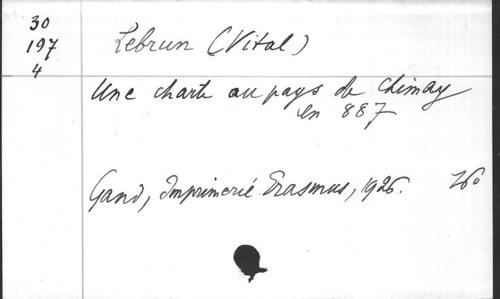 30
197
4
Lebrun (Vital)
Une charte au pays de Chimay
en 887
Gand, Imprimerie Erasmus, 1926.